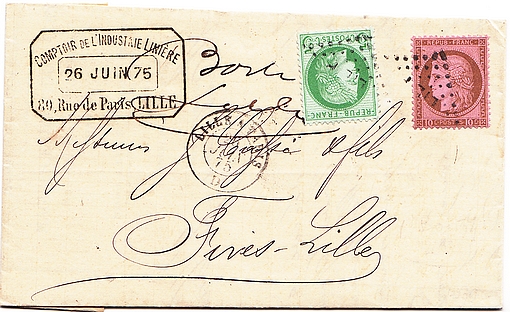 COMPTOIR DE L'INDUSTRIE LINIÈRE
26 JUIN 75
80, Rue de Paris, LILLE
REPUB·FRANC
REPUB·FRANC
10 10
LILLE
75
Messieurs & fils
Fives-Lille